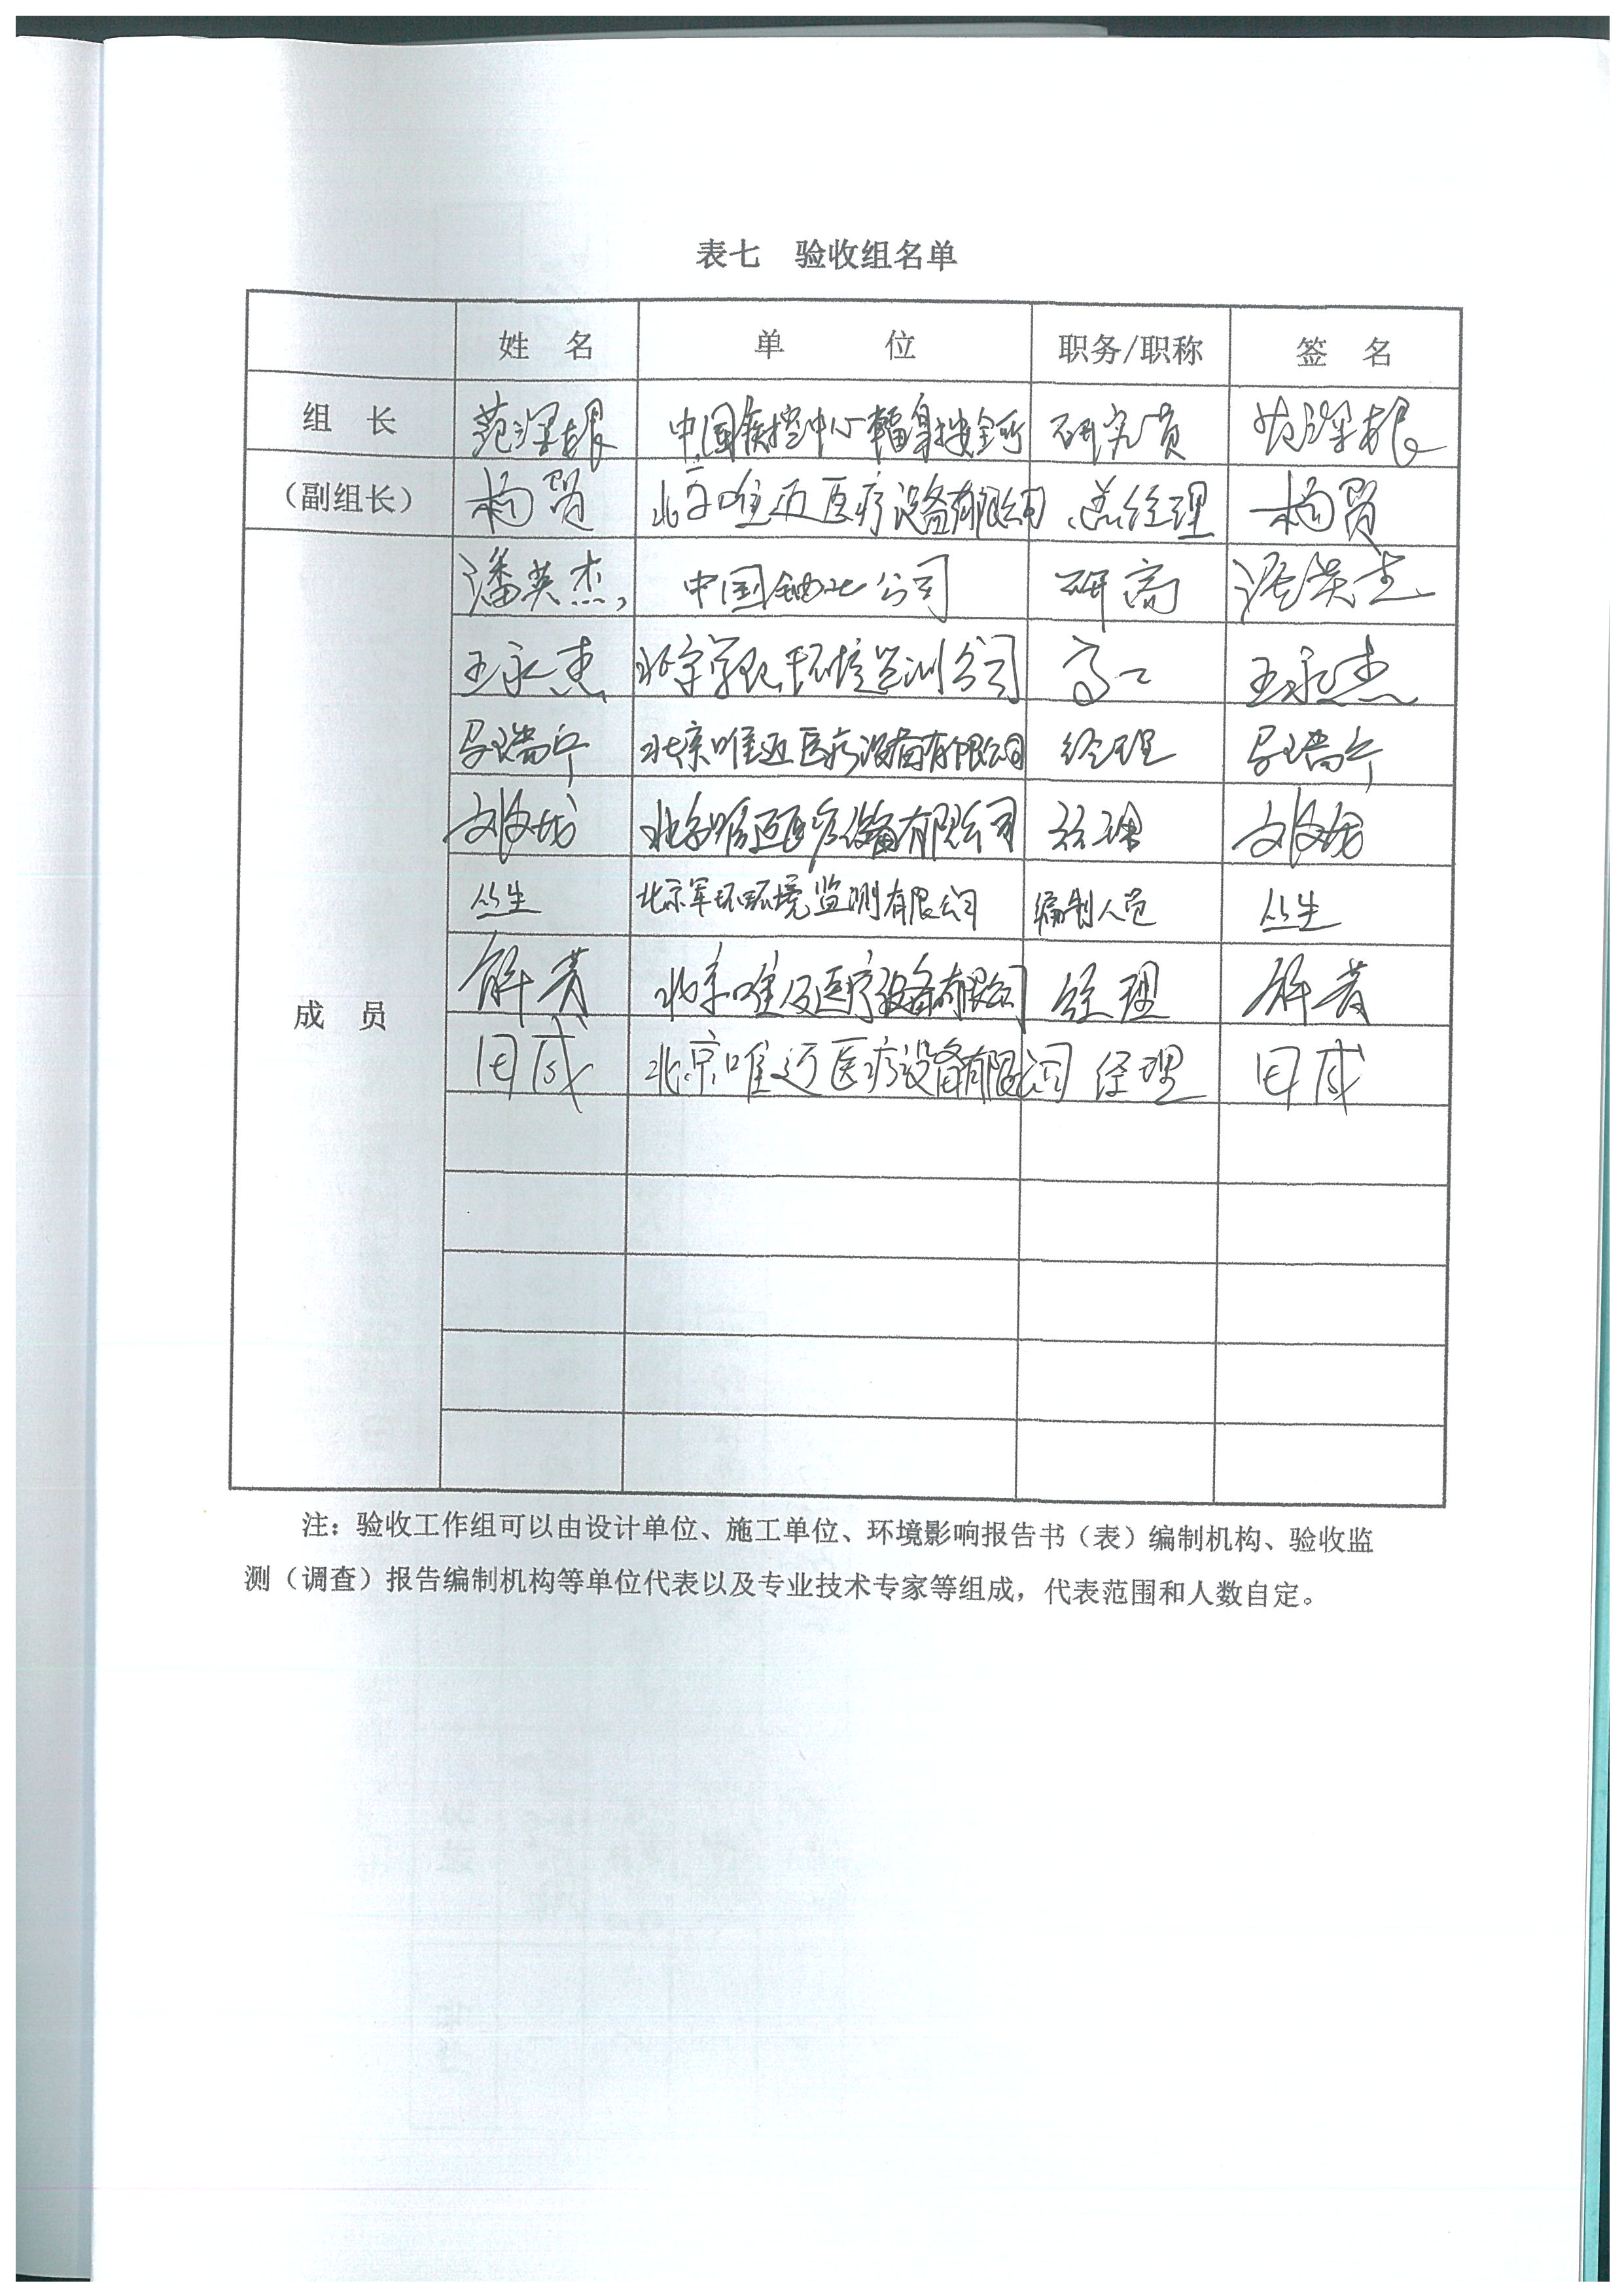 表七 验收组名单
姓 名 单 位 职务/职称 签 名
组 长 范深根 中国疾控中心辐射安全所 研究员 范深根
（副组长） 杨贸 北京唯迈医疗设备有限公司 总经理 杨贸
潘英杰 中国铀业公司 研高 潘英杰
王永杰 北京军环环境监测公司 高工 王永杰
北京唯迈医疗设备有限公司 经理
北京唯迈医疗设备有限公司 经理
丛生 北京军环环境监测有限公司 编制人员 丛生
解菁 北京唯迈医疗设备有限公司 经理 解菁
成 员
田成 北京唯迈医疗设备有限公司 经理 田成
注：验收工作组可以由设计单位、施工单位、环境影响报告书（表）编制机构、验收监
测（调查）报告编制机构等单位代表以及专业技术专家等组成，代表范围和人数自定。